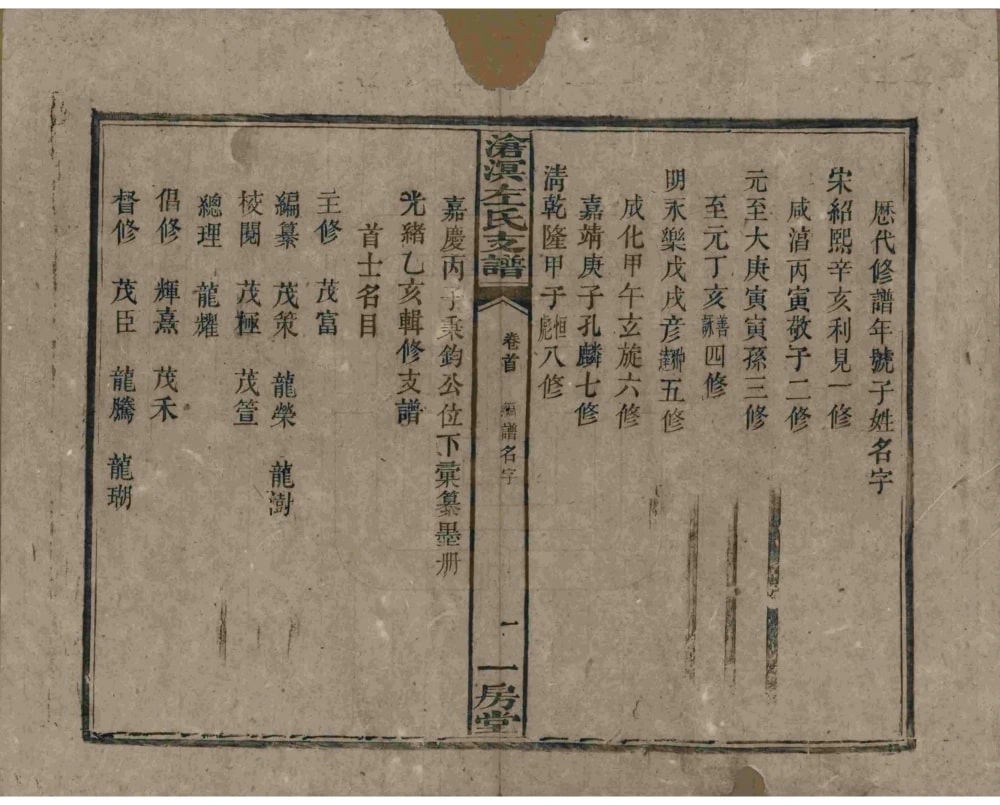 歷代修譜年號子姓名字
宋紹熙辛亥利見一修
咸淳丙寅敬子二修
元至大庚寅寅孫三修
至元丁亥善詠四修
明永樂戊戌彦達五修
成化甲午立旋六修
嘉靖庚子孔麟七修
清乾隆甲子恒彪八修
滄溟左氏支譜
卷首
編譜名字
一
一房堂
嘉慶丙子秉鈞公位下彙纂墨册
光緒乙亥輯修支譜
首士名目
主修 茂富
編纂 茂策 龍榮 龍澍
校閱 茂極 茂萱
總理 龍耀
倡修 輝熹 茂禾
督修 茂臣 龍騰 龍瑚